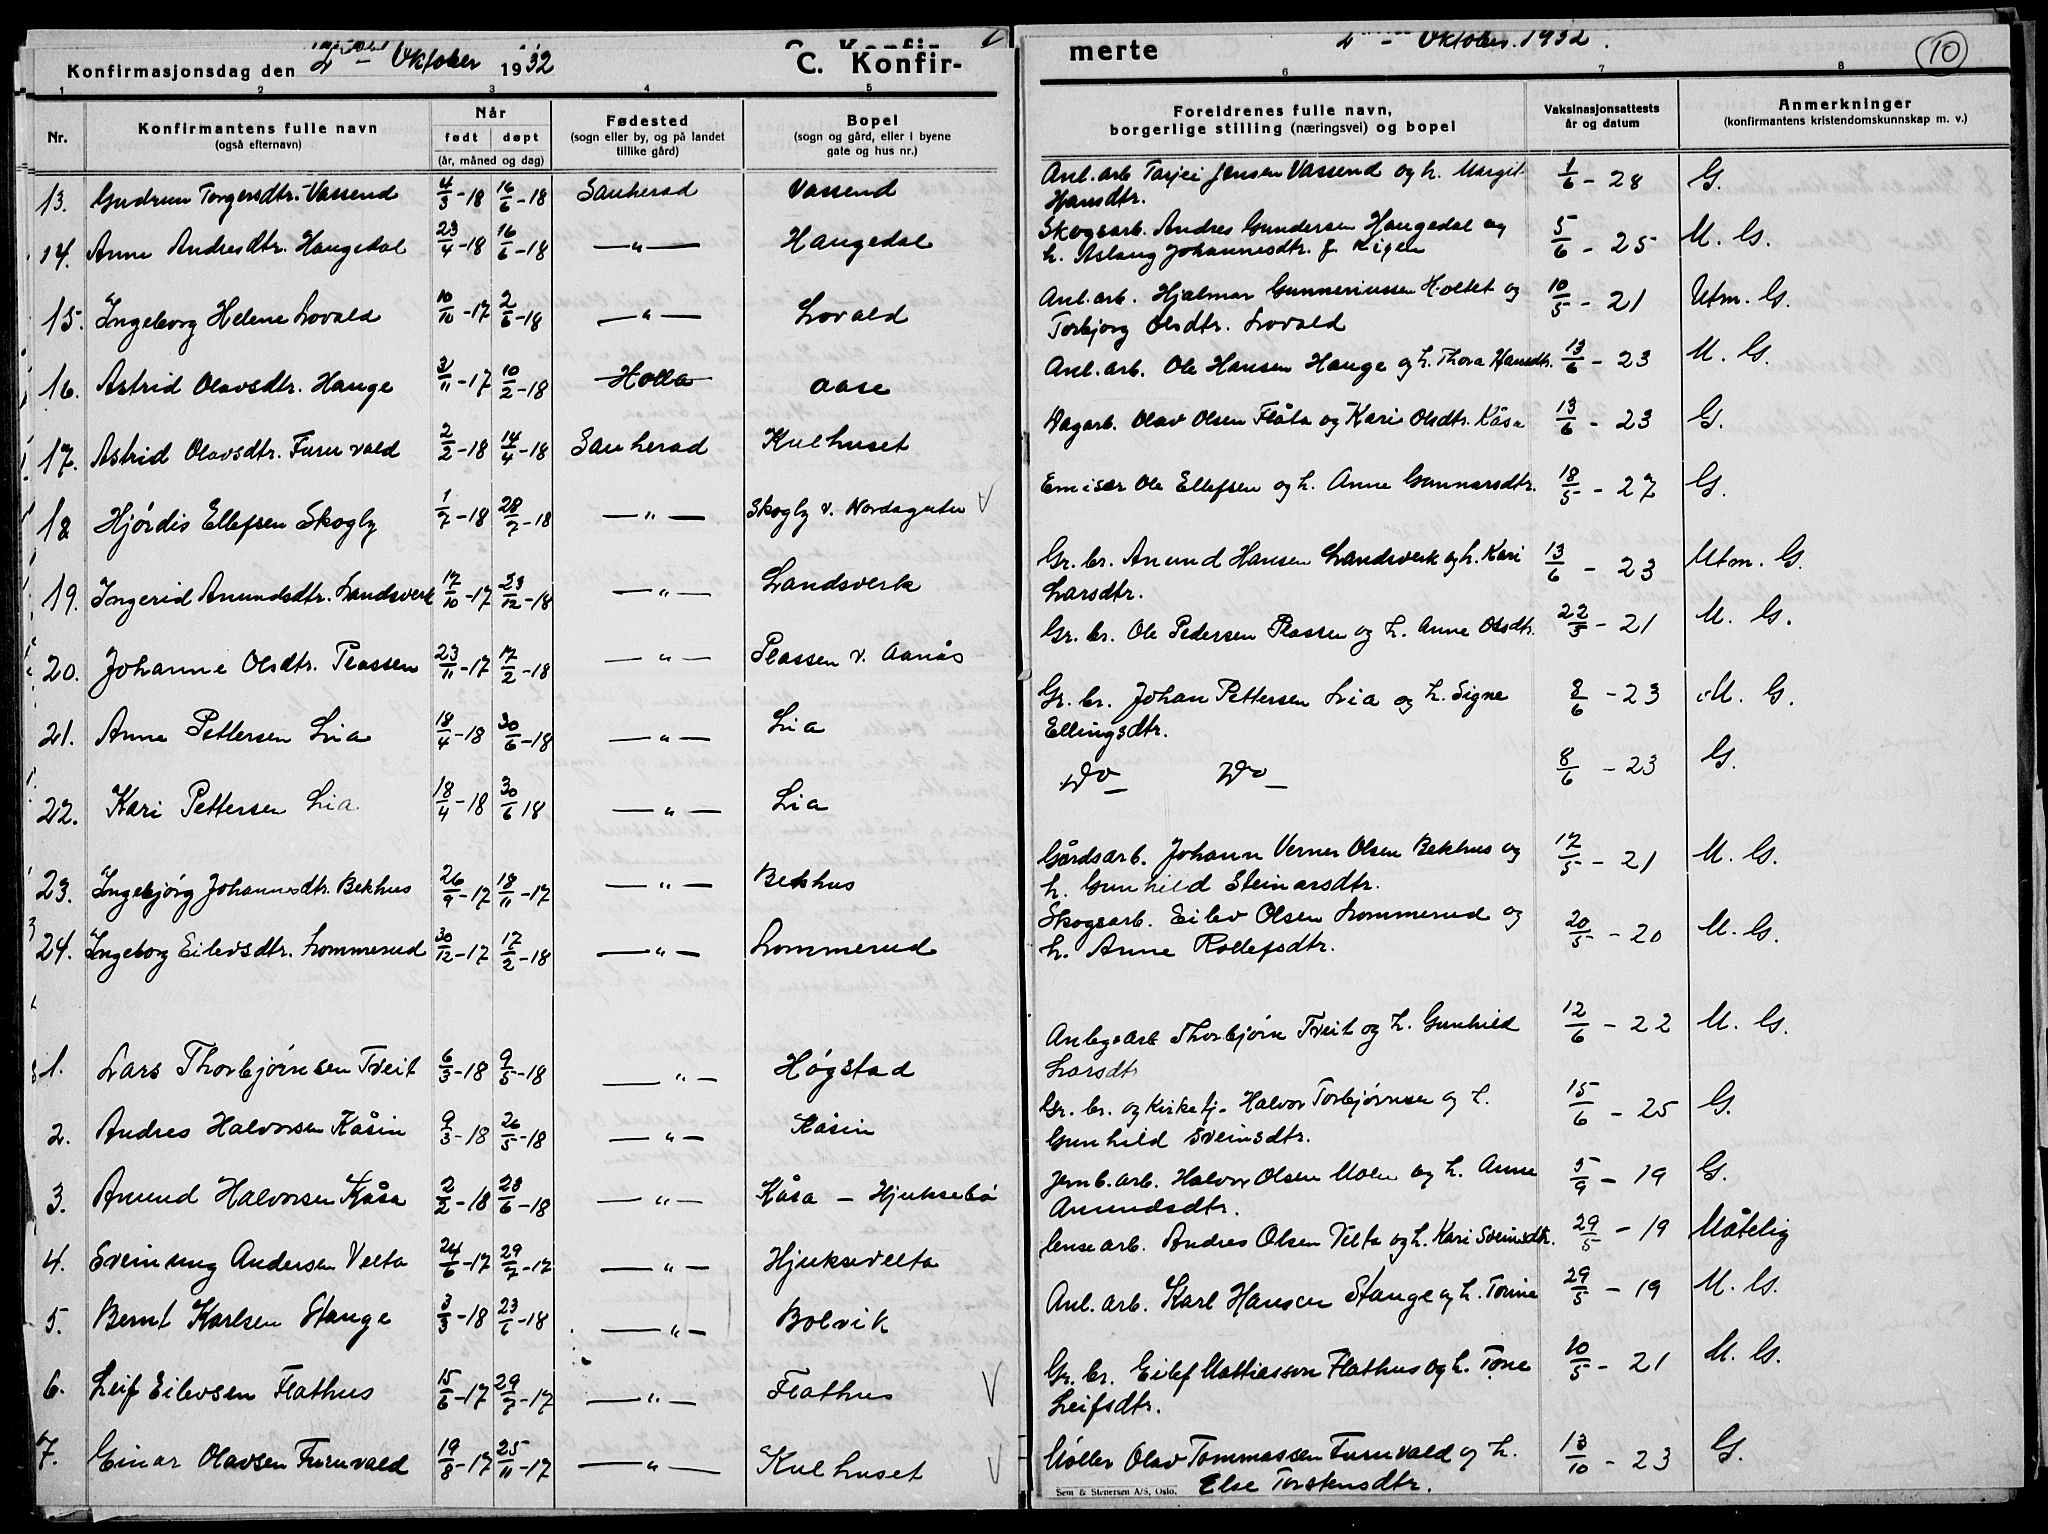 Konfirmasjonsdag den 2 Oktober 1932
C. Konfir-
1 2 3 4 5
Nr.
Konfirmantens fulle navn
(også efternavn)
Når
født døpt
(år, måned og dag)
Fødested
(sogn eller by, og på landet
tillike gård)
Bopel
(sogn og gård, eller i byene
gate og hus nr.)
13. Gudrun Torgersdtr. Vassend 4/3-18 16/6-18 Sauherad Vassend
14. Anne Andresdtr. Haugedal 23/4-18 16/6-18 —"— Haugedal
15. Ingeborg Helene Lovald 10/10-17 2/6-18 —"— Lovald
16. Astrid Olavsdtr. Hauge 3/11-17 10/2-18 Holla Aase
17. Astrid Olavsdtr. Furuvald 2/2-18 14/4-18 Sauherad Kulhuset
18 Hjørdis Ellefsen Skogly 1/7-18 28/7-18 —"— Skogly v. Nordagutu
19. Ingerid Amundsdtr. Landsverk 17/10-17 23/12-18 —"— Landsverk
20. Johanne Olsdtr. Plassen 23/11-17 17/2-18 —"— Plassen v. Aanås
21. Anne Pettersen Lia 18/4-18 30/6-18 —"— Lia
22. Kari Pettersen Lia 18/4-18 30/6 18 —"— Lia
23. Ingebjørg Johannesdtr. Bekhus 26/9-17 18/11-17 —"— Bekhus
24. Ingeborg Eilevsdtr. Lommerud 30/12-17 17/2-18 —"— Lommerud
1. Lars Thorbjørnsen Tveit 6/3-18 9/5-18 —"— Høgstad
2. Andres Halvorsen Kåsin 9/3-18 26/5-18 —"— Kåsin
3. Amund Halvorsen Kåsa 2/2-18 23/6-18 —"— Kåsa - Hjuksebø
4. Sveinung Andersen Velta 24/6-17 29/7-17 —"— Hjuksevelta
5. Bernt Karlsen Stange 3/3-18 23/6-18 —"— Bolvik
6. Leif Eilevsen Flathus 15/6-17 29/7-17 —"— Flathus
7. Einar Olavsen Furuvald 19/8-17 25/11-17 —"— Kulhuset
merte
2 Oktober 1932.
10
6 7 8
Foreldrenes fulle navn,
borgerlige stilling (næringsvei) og bopel
Vaksinasjonsattests
år og datum
Anmerkninger
(konfirmantens kristendomskunnskap m. v.)
Anl. arb Tarjei Jensen Vassend og h. Margit 1/6 - 28 G.
Hansdtr.
Skogsarb. Andres Gundersen Haugedal og 5/6 - 25 M. G.
h. Aslaug Johannesdtr. f. Rigen
Anl. arb. Hjalmar Gunneriussen Holtet og 10/5 - 21 Utm. G.
Torbjorg Olsdtr. Lovald
Anl. arb. Ole Hansen Hauge og h. Thora Hansdtr. 13/6 - 23 M. G.
Dagarb. Olav Olsen Flåta og Kari Olsdtr. Kåsa 13/6 - 23 G.
Emisær Ole Ellefsen og h. Anne Gunnarsdtr. 18/5 - 27 G.
Gr. br. Amund Hansen Landsverk og h. Kari 13/6 - 23 Utm. G.
Larsdtr.
Gr. br. Ole Pedersen Plassen og h. Anne Olsdtr. 22/5 - 21 M. G.
Gr. br. Johan Pettersen Lia og h. Signe 8/6 - 23 M. G.
Ellingsdtr.
Do — Do — 8/6 - 23 G.
Gårdsarb. Johann Verner Olsen Bekhus og 17/5 - 21 M. G.
h. Gunhild Steinarsdtr.
Skogsarb. Eilev Olsen Lommerud og 20/5 - 20 M. G.
h. Anne Rollefsdtr.
Anlegsarb Thorbjørn Tveit og h. Gunhild 12/6 - 22 M. G.
Larsdtr
Gr. br. og Kirketj. Halvor Torbjørnsen og h. 15/6 - 25 G.
Gunhild Sveinsdtr.
Jernb. arb. Halvor Olsen Moen og h. Anne 5/9 - 19 G.
Amundsdtr.
lense arb. Andres Olsen Velta og h. Kari Sveinsdtr. 29/5 - 19 Måtelig
Anl. arb. Karl Hansen Stange og h. Tomine 29/5 - 19 M. G.
Gr. br. Eilef Mathiassen Flathus og h. Tone 10/5 - 21 M. G.
Leifsdtr.
Møller Olav Tommassen Furuvald og h. 13/10 - 23 G.
Else Torstensdtr.
Sem & Stenersen A/S, Oslo.